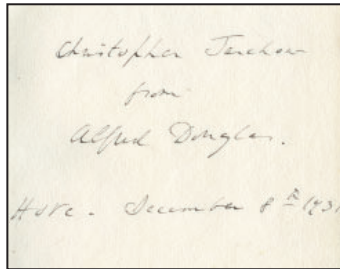 Christopher
from
Alfred Douglas.
Hove. December 8th 1931